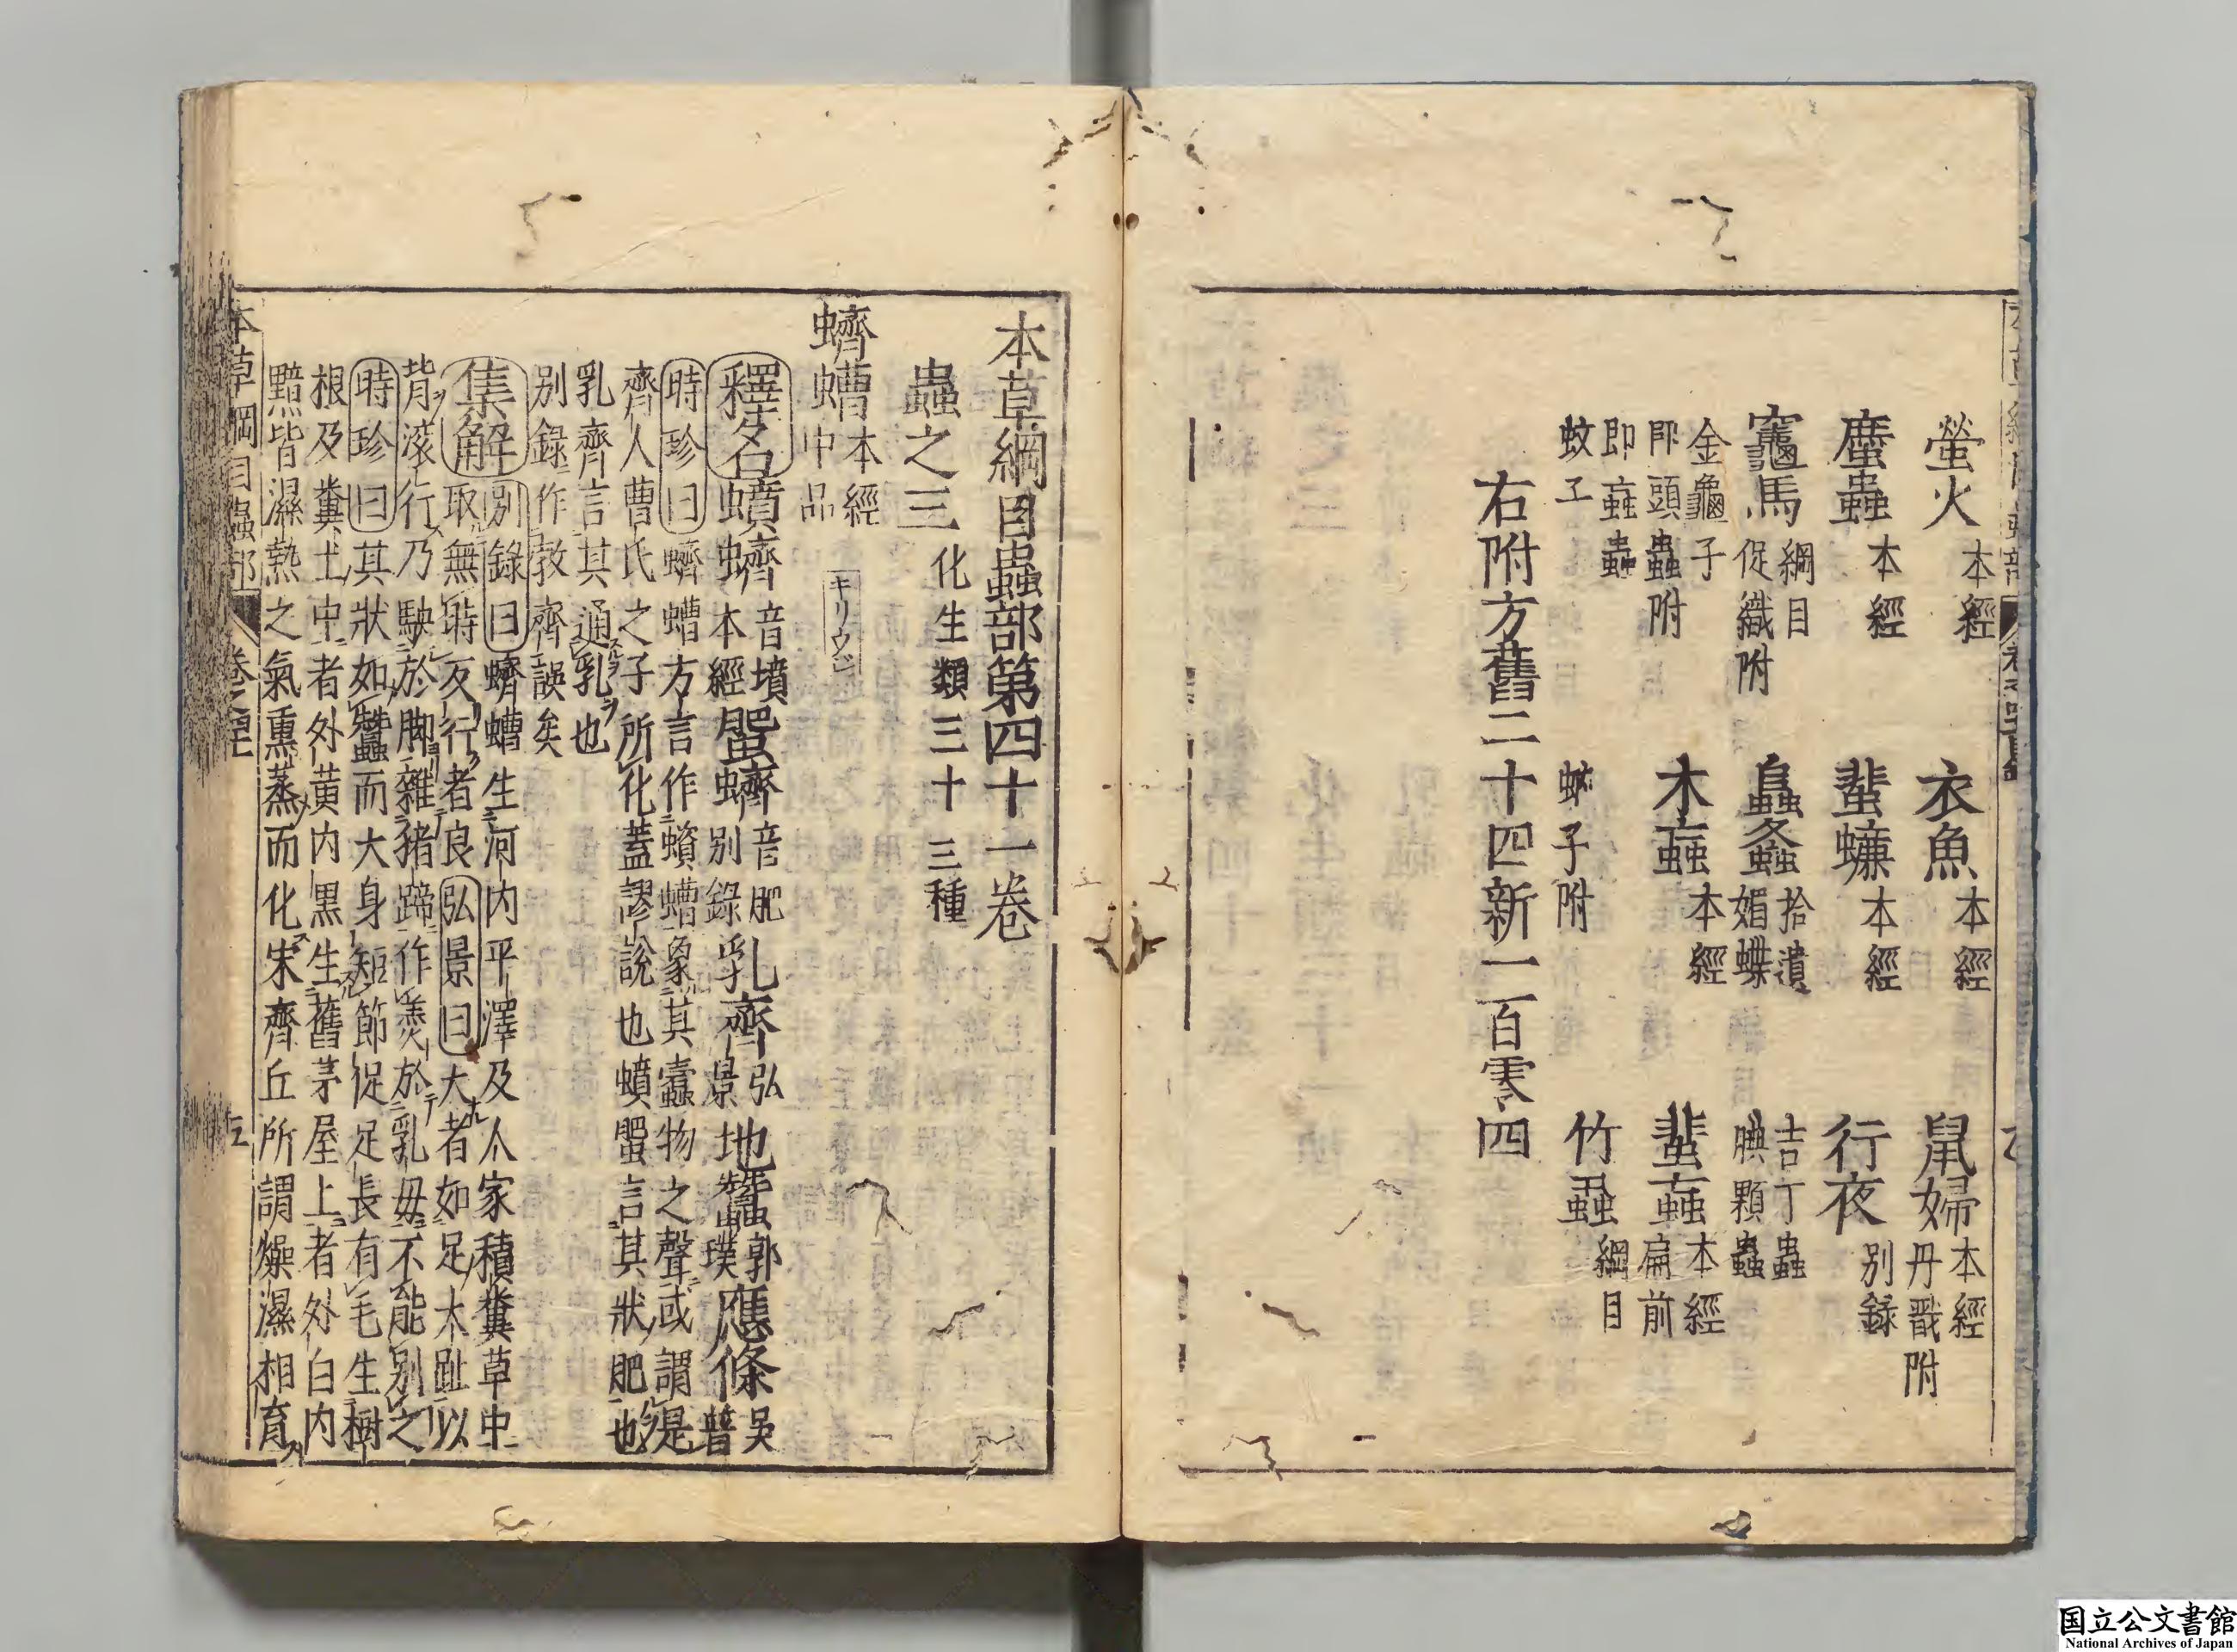 螢火 本經
衣魚 本經
鼠婦 本經 丹戩附
䗪蟲 本經
蜚蠊 本經
行夜 別録
竈馬 綱目 促織附
𧒂螽 拾遺
吉丁蟲
金龜子
媚蝶
腆顆蟲
叩頭蟲附
木蝱 本經
蜚蝱 本經
即蝱蟲
扁前
蚊子
蚋子附
竹蝨 綱目
右附方舊二十四新一百零四
本草綱目蟲部第四十一卷
蟲之三 化生類三十三種
蠐螬 本經中品 キリウジ
釋名蟦蠐 音墳本經 蜰蠐 音肥別錄 乳齊 弘景 地蠶 郭璞 應條 吳普
時珍曰蠐螬方言作蠀螬象其蠹物之聲或謂是
齊人曹氏之子所化蓋謬說也蟦蜰言其狀肥也
乳齊言其通乳也
別錄作敦齊誤矣
集解別錄曰蠐螬生河內平澤及人家積糞草中
取無時反行者良弘景曰大者如足大趾以
背滚行乃駛於脚雜猪蹄作羹於乳母不能別之
時珍曰其狀如蠶而大身短節促足長有毛生樹
根及糞土中者外黃內黒生舊茅屋上者外白內
黯皆濕熱之氣熏蒸而化宋齊丘所謂燥濕相育
本草綱目蟲部